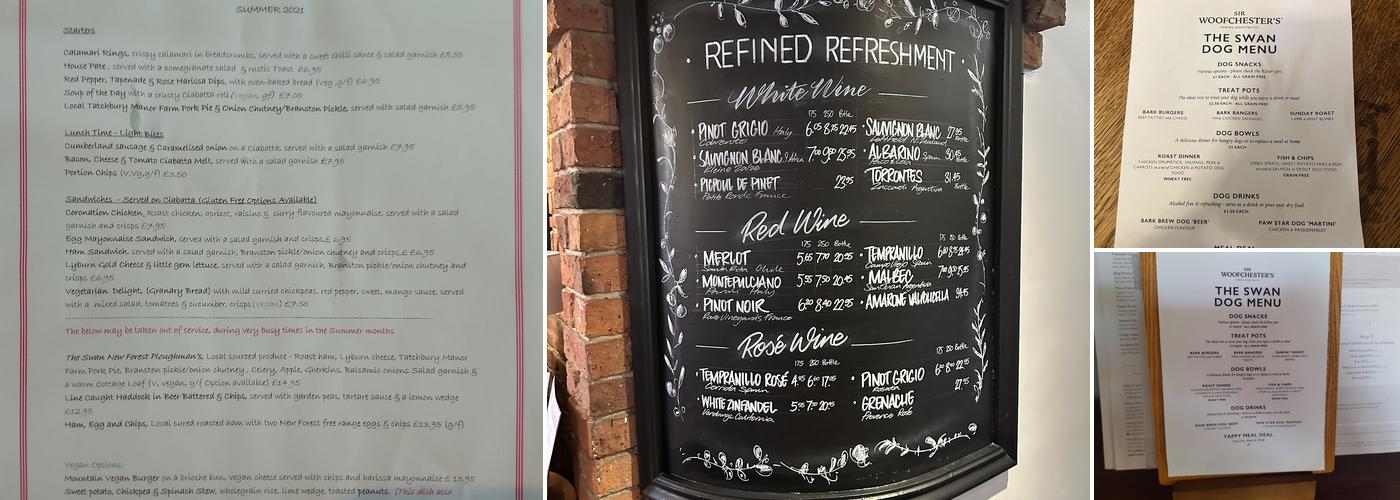 SUMMER 2021
Starters
Calamari Rings, crispy calamari in breadcrumbs, served with a sweet chilli sauce & salad garnish
House Pate, served with a pomegranate salad & rustic Toast £6.95
Red Pepper, Tapenade & Rose Harissa Dips, with oven-baked bread (veg, g/f) £6.95
Soup of the Day with a crusty Ciabatta roll (vegan, gf) £7.00
Local Tatchbury Manor Farm Pork Pie & Onion Chutney/Branston Pickle, served with salad garnish £5.95
Lunch Time - Light Bites
Cumberland sausage & Caramelised onion on a Ciabatta, served with a salad garnish £7.95
Bacon, Cheese & Tomato Ciabatta Melt, served with a salad garnish £7.95
Portion Chips (V,Vg,g/f) £3.50
Sandwiches - Served on Ciabatta (Gluten Free Options Available)
Coronation Chicken, Roast chicken, apricot, raisins & curry flavoured mayonnaise, served with a salad
garnish and crisps £7.95
Egg Mayonnaise Sandwich, served with a salad garnish and crisps,£ 6.95
Ham Sandwich, served with a salad garnish, Branston pickle/onion chutney and crisps,£ £6.95
Lyburn Gold Cheese & little gem lettuce, served with a salad garnish, Branston pickle/onion chutney and
crisps £6.95
Vegetarian Delight, (Granary Bread) with mild curried chickpeas, red pepper, sweet, mango sauce, served
with a mixed salad, tomatoes & cucumber, crisps(vegan) £7.50
The below may be taken out of service, during very busy times in the Summer months
The Swan New Forest Ploughman's, Local sourced produce - Roast ham, Lyburn cheese, Tatchbury Manor
Farm Pork Pie, Branston pickle/onion chutney, Celery, Apple, Gherkins, Balsamic onions Salad garnish &
a warm Cottage Loaf (V, vegan, g/f Option available) £14.95
Line Caught Haddock in Beer Battered & Chips, served with garden peas, tartare sauce & a lemon wedge
£12.95
Ham, Egg and Chips, Local cured roasted ham with two New Forest free range eggs & chips £13.95 (g/f)
Vegan Options:
Mountain Vegan Burger on a brioche bun, vegan cheese served with chips and harissa mayonnaise £ 13.95
Sweet potato, Chickpea & Spinach Stew, wholegrain rice, lime wedge, toasted peanuts. (This dish also
REFINED REFRESHMENT
White Wine
175 250 Bottle
PINOT GRIGIO Italy
SAUVIGNON BLANC
PICPOUL DE PINET 23.95
SAUVIGNON BLANC 27.95
ALBARINO Spain
TORRONTES 31.45
Red Wine
175 250 Bottle
MERLOT 5.65 7.70 20.95
MONTEPULCIANO 5.55 7.50 20.45
PINOT NOIR 6.20 8.40 22.95
TEMPRANILLO
MALBEC
AMARONE VALPOLICELLA
Rosé Wine
175 250 Bottle
TEMPRANILLO ROSÉ
WHITE ZINFANDEL 5.55 7.50 20.45
PINOT GRIGIO
GRENACHE
SIR
WOOFCHESTER'S
THE SWAN
DOG MENU
DOG SNACKS
Various options - please check the Kilner jars
£1 EACH - ALL GRAIN FREE
TREAT POTS
The ideal size to treat your dog while you enjoy a drink or meal
£2.50 EACH - ALL GRAIN FREE
BARK BURGERS
BEEF PATTIES with CHEESE
BARK BANGERS
MINI CHICKEN SAUSAGES
SUNDAY ROAST
LAMB & MINT BONES
DOG BOWLS
A delicious dinner for hungry dogs or to replace a meal at home
£5 EACH
ROAST DINNER
CHICKEN DRUMSTICK, SAUSAGE, PEAS &
CARROTS in a bed of CHICKEN & POTATO DOG
FOOD
WHEAT FREE
FISH & CHIPS
DRIED SPRATS, SWEET POTATO FRIES & PEAS
in a bed of SALMON & TROUT DOG FOOD
GRAIN FREE
DOG DRINKS
Alcohol free & refreshing - serve as a drink or pour over dry food
BARK BREW DOG 'BEER'
CHICKEN FLAVOUR
PAW STAR DOG 'MARTINI'
CHICKEN & PASSIONFRUIT
MEAL DEAL
SIR
WOOFCHESTER'S
THE SWAN
DOG MENU
DOG SNACKS
TREAT POTS
BARK BURGERS
BARK BANGERS
SUNDAY ROAST
DOG BOWLS
ROAST DINNER
FISH & CHIPS
DOG DRINKS
BARK BREW DOG 'BEER'
PAW STAR DOG 'MARTINI'
YAPPY MEAL DEAL